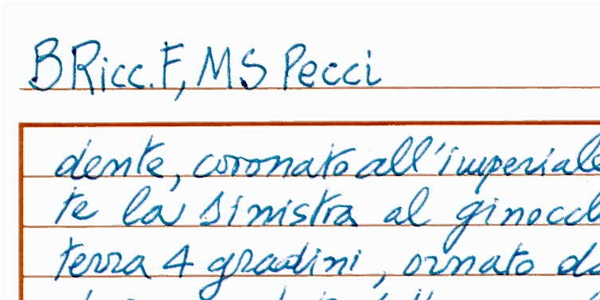 BRicc.F, MS Pecci
dente, coronato all'imperiale
te la sinistra al ginocc
terra 4 gradini, ornato d